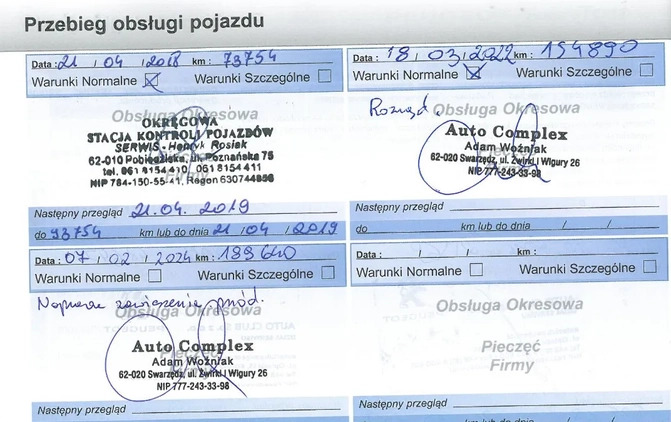 Przebieg obsługi pojazdu
Data: 21 / 04 / 2018 km: 73754
Warunki Normalne ☒ Warunki Szczególne ☐
Obsługa Okresowa
OKRĘGOWA
STACJA KONTROLI POJAZDÓW
SERWIS - Henryk Rosiak
62-010 Pobiedziska, ul. Poznańska 75
tel. 061 8154 410, 061 8154 411
NIP 784-150-55-41, Regon 630744856
Następny przegląd 21.04. 2019
do 93754 km lub do dnia 21 / 04 / 2019
Data: 18 / 03 / 2022 km: 154890
Warunki Normalne ☒ Warunki Szczególne ☐
Rozrząd.
Obsługa Okresowa
Auto Complex
Pieczęć
Adam Woźniak
62-020 Swarzędz, ul. Żwirki i Wigury 26
NIP 777-243-33-98
Następny przegląd
do km lub do dnia / /
Data: 07 / 02 / 2024 km: 189640
Warunki Normalne ☐ Warunki Szczególne ☐
Naprawa zawieszenia przód.
Obsługa Okresowa
Auto Complex
Pieczęć
Adam Woźniak
62-020 Swarzędz, ul. Żwirki i Wigury 26
NIP 777-243-33-98
Następny przegląd
Data: / / km:
Warunki Normalne ☐ Warunki Szczególne ☐
Obsługa Okresowa
Pieczęć
Firmy
Następny przegląd
km lub do dnia / /